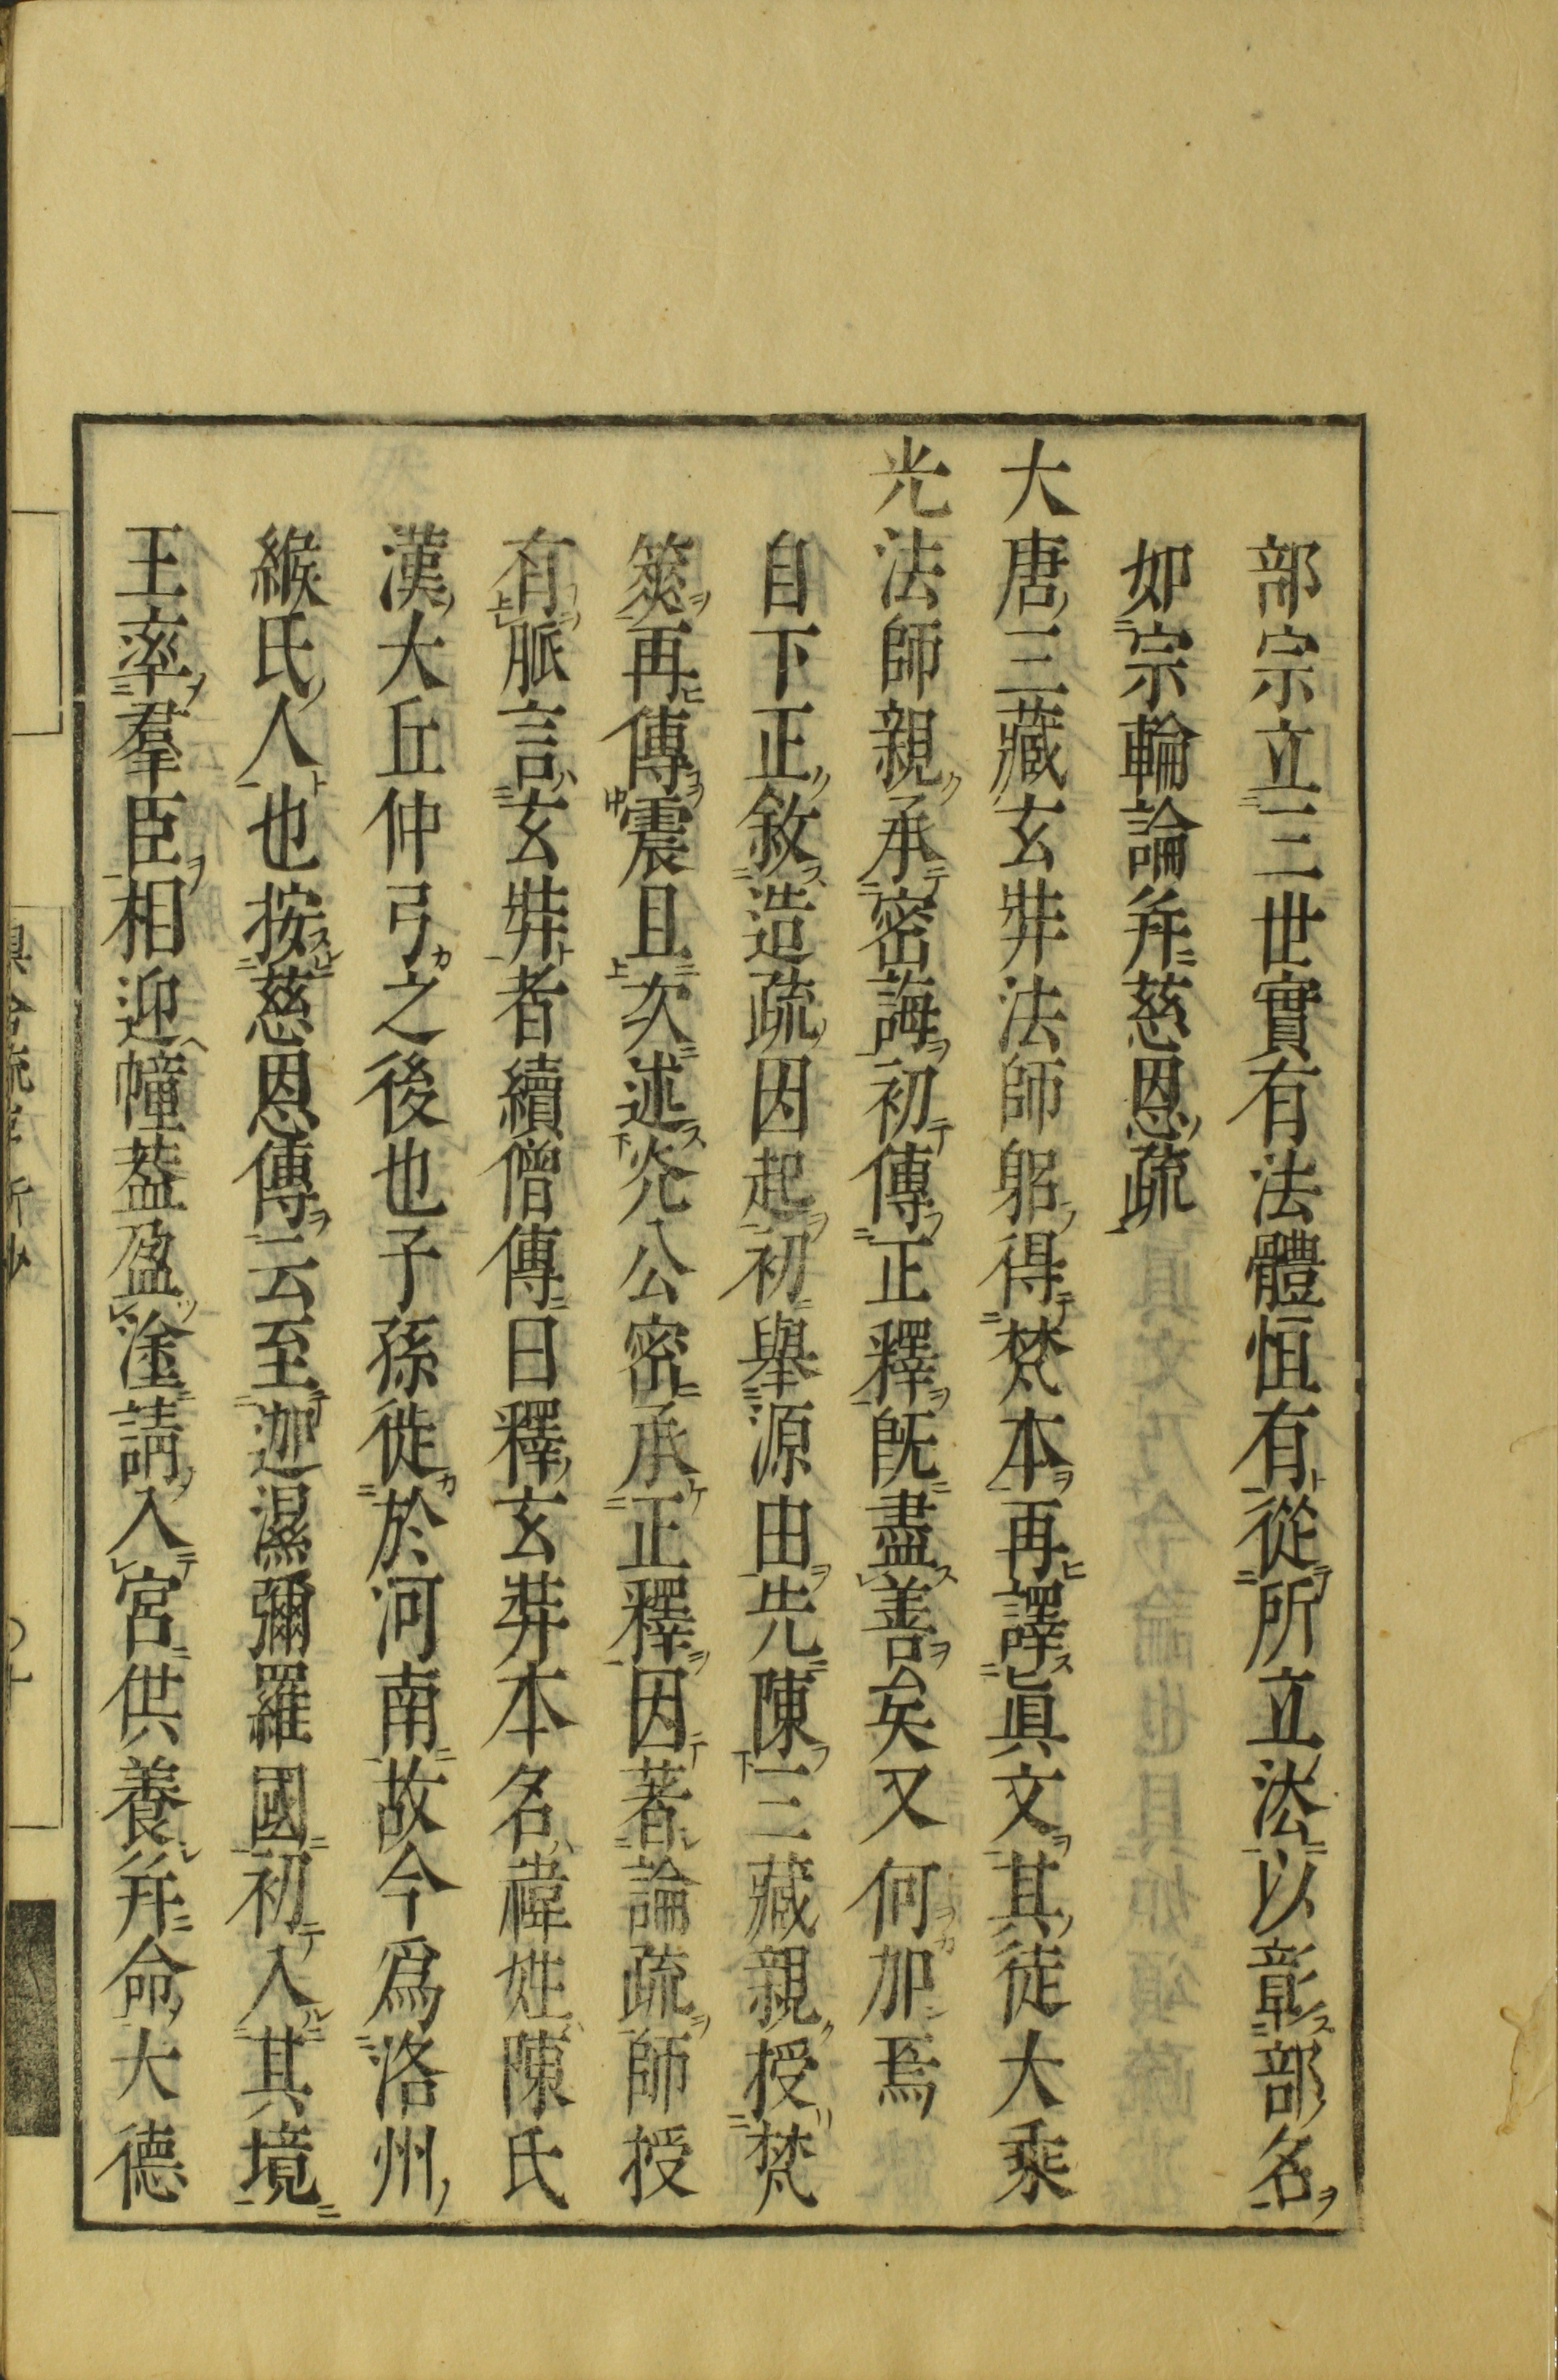 部宗立三世實有法體恒有從所立法以彰部名
如宗輪論并慈恩疏
大唐三藏玄奘法師躬得梵本再譯眞文其徒大乘
光法師親承密誨初傳正釋既盡善矣又何加焉
自下正敘造疏因起初舉源由先陳三藏親授梵
筴再傳震旦次述光公密承正釋因著論疏師授
有脈言玄奘者續僧傳曰釋玄奘本名褘姓陳氏
漢大丘仲弓之後也子孫徙於河南故今爲洛州
緱氏人也按慈恩傳云至迦濕彌羅國初入其境
王率羣臣相迎幢蓋盈塗請入宮供養并命大德